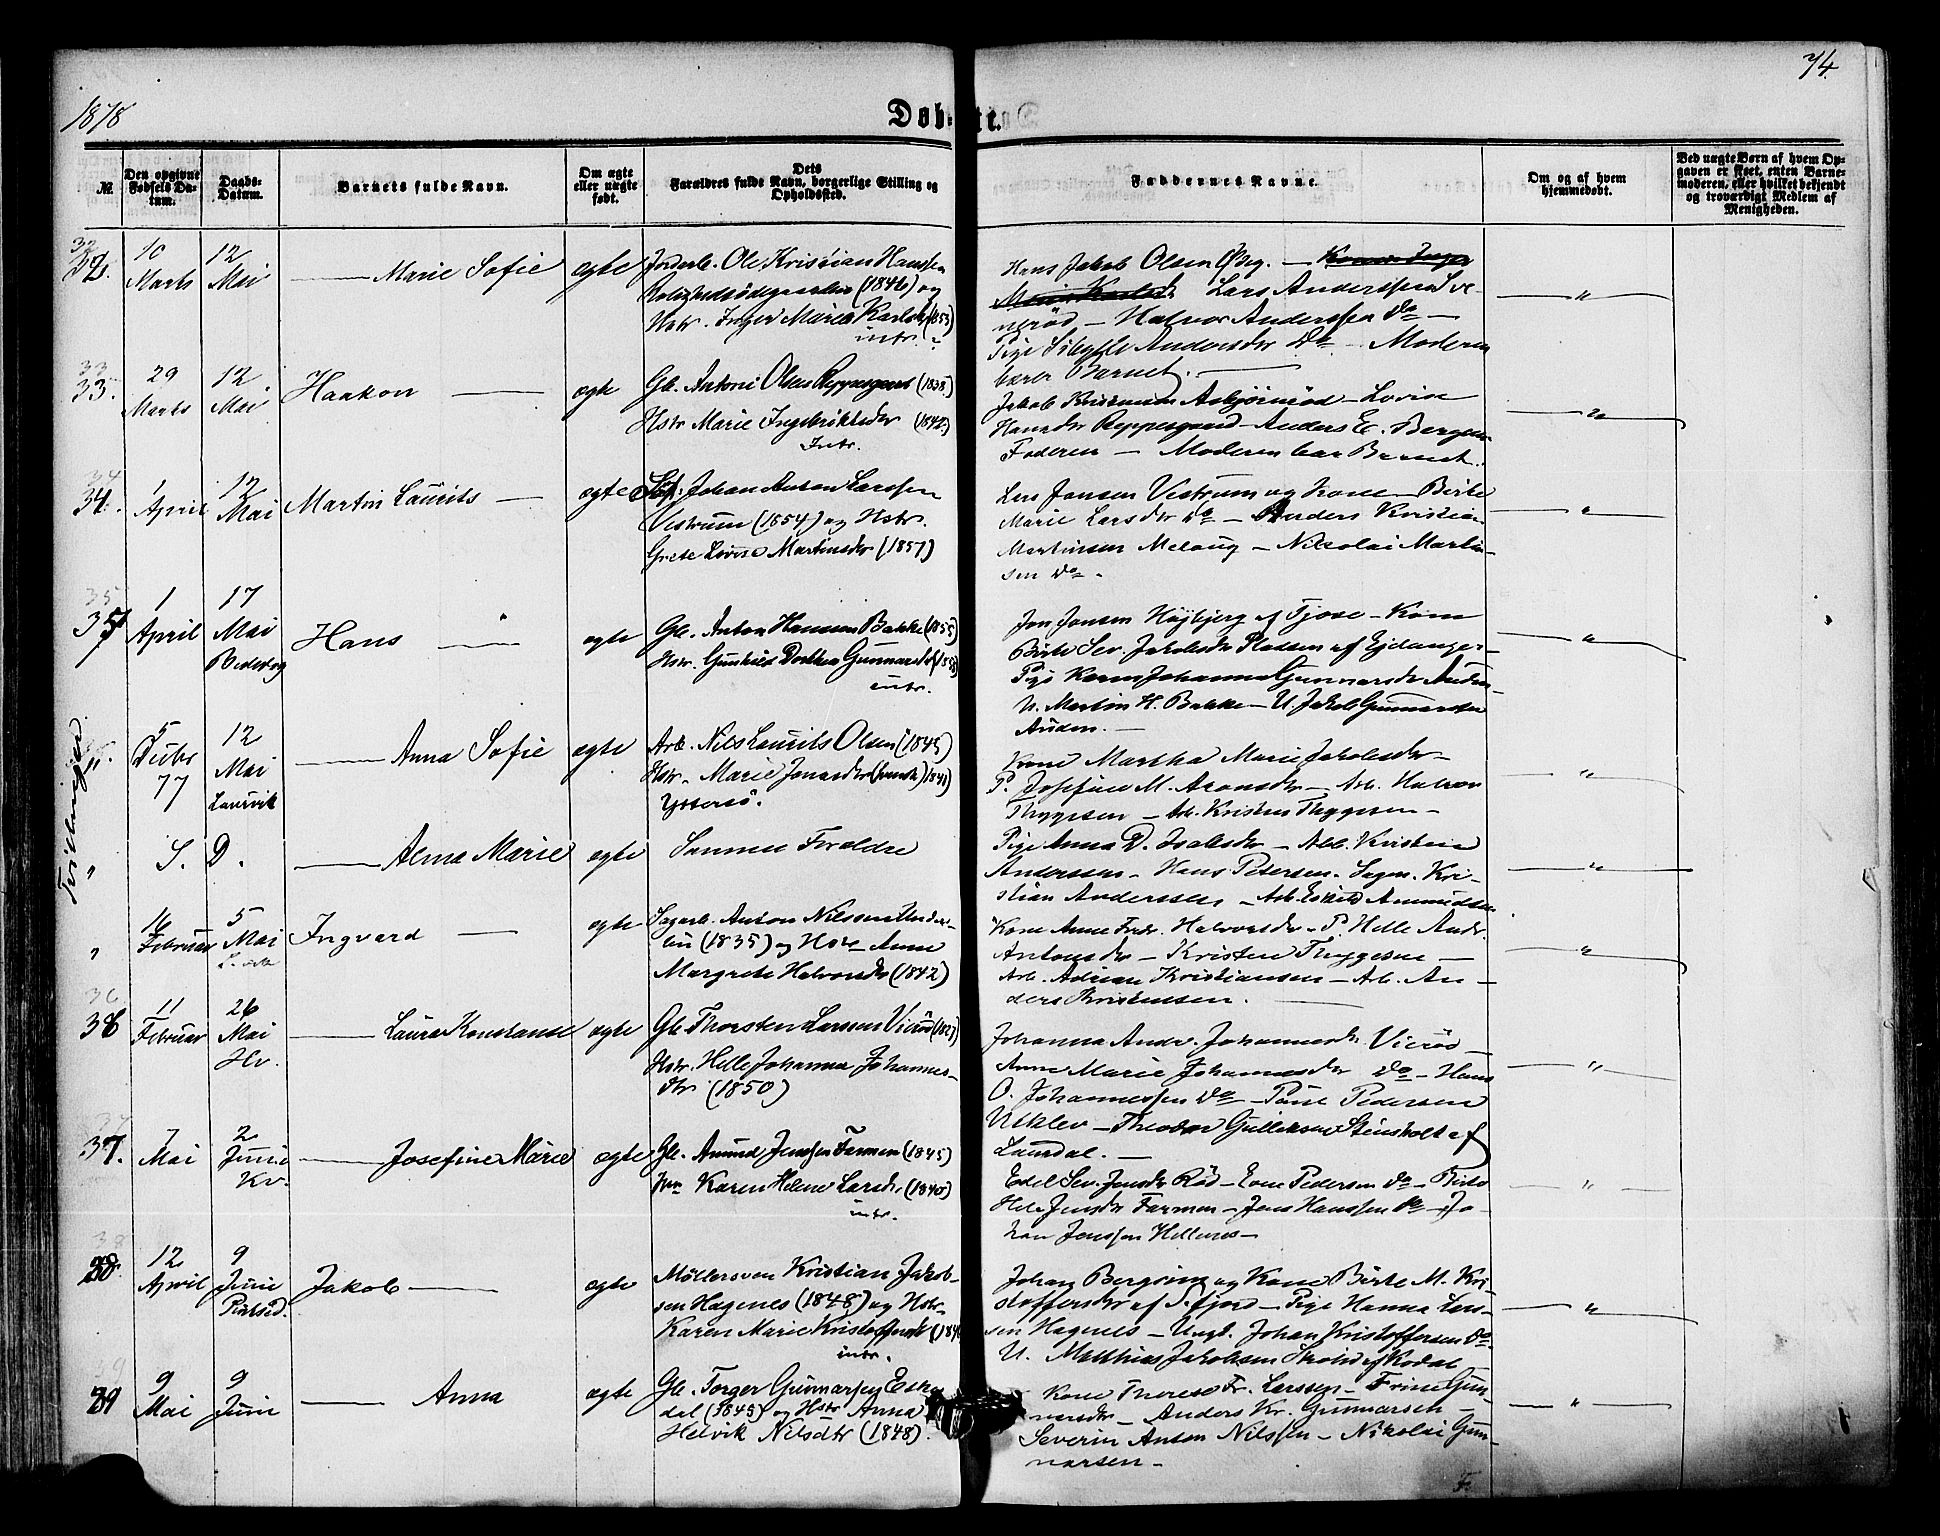 1878
Døbte.
74.
№
Den opgivne Fødsels Datum.
Daabs-Datum.
Barnets fulde Navn.
Om ægte eller uægte født.
Dets Forældres fulde Navn, borgerlige Stilling og Opholdssted.
Faddernes Navne.
Om og af hvem hjemmedøbt.
Ved uægte Børn af hvem Opgaven er skeet, enten Barnemoderen, eller hvilket bekjendt og troværdigt Medlem af Menigheden.
32.
10 Marts
12 Mai
Marie Sofie
ægte
Ole Kristian Hanssen
(1846) og
Hstr. Inger Marie Karlsdtr (1853)
intr.
Hans Jakob Olsen Øbg. —
Lars Anderssen Sve-
nerød — Halvor Anderssen Do —
Pige Sibylle Andersdtr Do — Moderen
bærer Barnet. —
33.
29 Marts
12 Mai
Haakon
ægte
Gb. Antoni Olsen Reppesgaard (1838)
Hstr Marie Ingebriktsdtr (1842)
Intr.
Jakob Kristensen Asbjørnrød — Lovise
Hansdtr Reppesgaard — Anders E. Bergen
Faderen — Moderen bar Barnet.
34.
1 April
12 Mai
Martin Laurits
ægte
Johan Anton Larssen
Vestrum (1854) og Hstr.
Grete Lovise Martinsdtr (1857)
Lars Jonsen Vestrum og Kone — Birte
Marie Larsdtr Do — Anders Kristian
Martinsen Melaug — Nikolai Martin-
sen Do.
35
1 April
17 Mai
Hans
ægte
Gb. Anton Hansen Bakke (1855)
Hstr. Gunhild Dorthea Gunnarsdtr (1858)
intr.
Jon Jonsen Højbjerg af Tjose — Kone
Birte Sev. Jakobsdr Pladsen af Ejdanger
Pige Karen Johanne Gunnarsdtr Auden
U. Martin H. Bakke — U. Jakob Gunnarsen
Auden. —
Tvillinger
5 Decbr 77
12 Mai Laurvik
Anna Sofie
ægte
Arb. Nils Laurits Olsen (1845)
Hstr. Marie Jonasdtr
Yttersø.
Kone Martha Marie Jakobsdtr —
P. Josefine M. Aronsdtr — Arb. Halvor
Thygesen — Arb. Kristen Thygesen —
"
S. D.
Alma Marie
ægte
Samme Forældre
Pige Anna D. Isaksdtr — Arb. Kristian
Anderssen — Hans Petersen. Sagm. Kri-
stian Anderssen — Arb. Eskild Amundsen
"
16 Februar
5 Mai
Ingvard
ægte
Sagarb. Anton Nilssen Under-
lien (1835) og Hstr Anne
Margrete Halvorsdtr (1842)
Kone Anne Fredr. Halvorsdtr — P. Helle Andr.
Antonsdtr — Kristen Thygesen —
Arb. Adrian Kristiansen — Arb. An-
ders Kristensen. —
36
11 Februar
26 Mai
Hv.
Laura Konstanse
ægte
Gb. Thorsten Larssen Vierød
Hstr. Helle Johanna Johannes-
dtr (1850)
Johanna Andr. Johannesdtr Vierød —
Anne Marie Johannesdtr Do — Hans
O. Johannessen Do — Pauline Pedersen
Utklev — Theodor Gulliksen Stensholt af
Laurdal. —
37.
7 Mai
2 Juni
Kv.
Josefine Marie
ægte
Gb. Amund Jenssen Farmen (1845)
Karen Helene Larsdtr (1840)
intr.
Edel Sev. Jensdtr Rød — Even Pedersen Do — Birte
Hele Jensdtr Farmen — Jens Hanssen Do — Jo-
han Jenssen Hellenes —
38.
12 April
9 Juni
Jakob
ægte
Møllersven Kristian Jakob-
sen Hagenes (1848) og Hstr.
Karen Marie Kristoffersdtr
intr.
Johan Bergsing og Kone Birte M. Kri-
stoffersdtr af S.fjord — Pige Hanna Lars-
sen Hagenes — Ungk. Johan Kristoffersen Do
U. Matthias Jakobsen Skolid af Kodal
39
9 Mai
9 Juni
Anna
ægte
Gb. Torger Gunnarsen Eske-
dal (1845) og Hstr Anna
Helvik Nilsdtr (1848).
Kone Therese Fr. Larssen — Trine Gun-
narsdtr — Anders Kr. Gunnarsen —
Severin Anton Nilssen — Nikolai Gun-
narsen —
F.